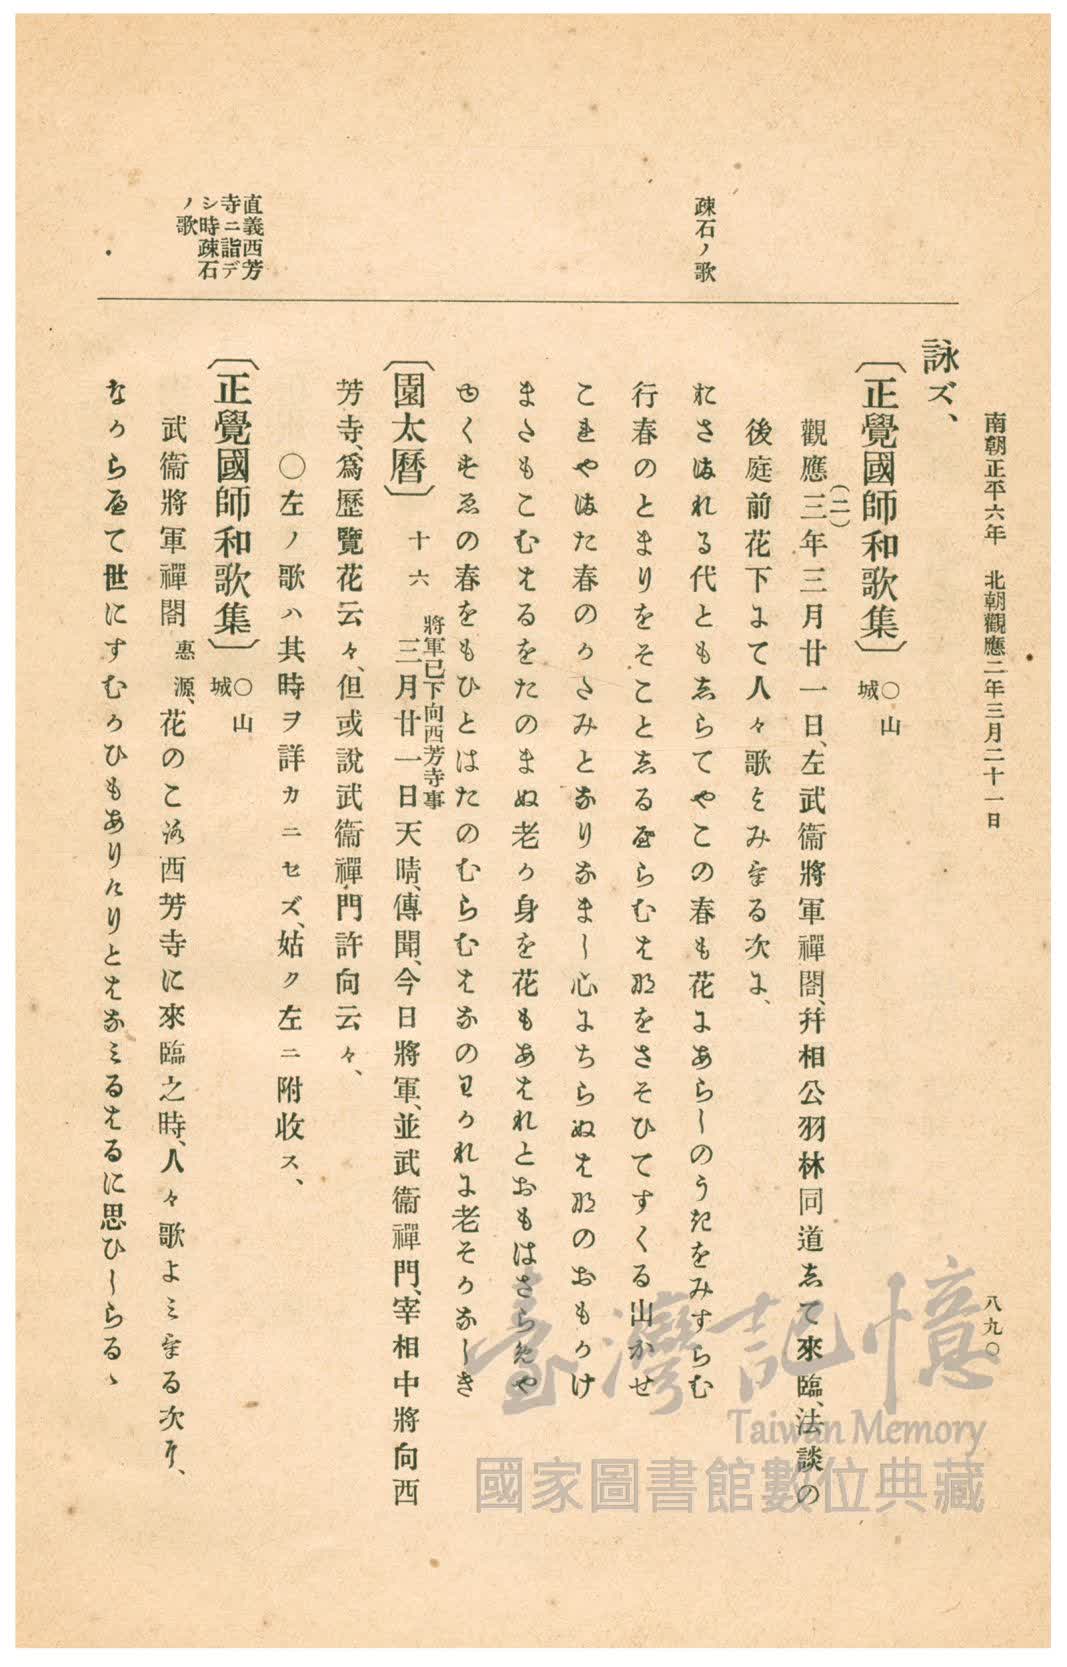 南朝正平六年　北朝觀應二年三月二十一日
八九〇
詠ズ、
〔正覺國師和歌集〕〇山城
觀應三(二)年三月廿一日、左武衞將軍禪閤、幷相公羽林同道志て來臨、法談の
後庭前花下よて人々歌よみ侍る次よ、
疎石ノ歌
おさまれる代ともしらてやこの春も花にあらしのうきをみすらむ
行春のとまりをそことしるへらむはなをさそひてすくる山かせ
これやまた春のかたみとなりなまし心にちらぬはなのおもかけ
またもこむはるをたのまぬ老か身を花もあはれとおもはさらめや
ゆくすゑの春をもひとはたのむらむはなのわかれに老そかなしき
〔園太曆〕十六　將軍已下向西芳寺事
三月廿一日天晴、傳聞、今日將軍、並武衞禪門、宰相中將向西
芳寺、爲歷覽花云々、但或說武衞禪門許向云々、
〇左ノ歌ハ其時ヲ詳カニセズ、姑ク左ニ附收ス、
直義西芳
寺ニ詣デ
シ時疎石
ノ歌
〔正覺國師和歌集〕〇山城
武衞將軍禪閤惠源、花のころ西芳寺に來臨之時、人々歌よミ侍る次に、
なからへて世にすむかひもありけりとはなミるはるに思ひしらるゝ
臺灣記憶
Taiwan Memory
國家圖書館數位典藏